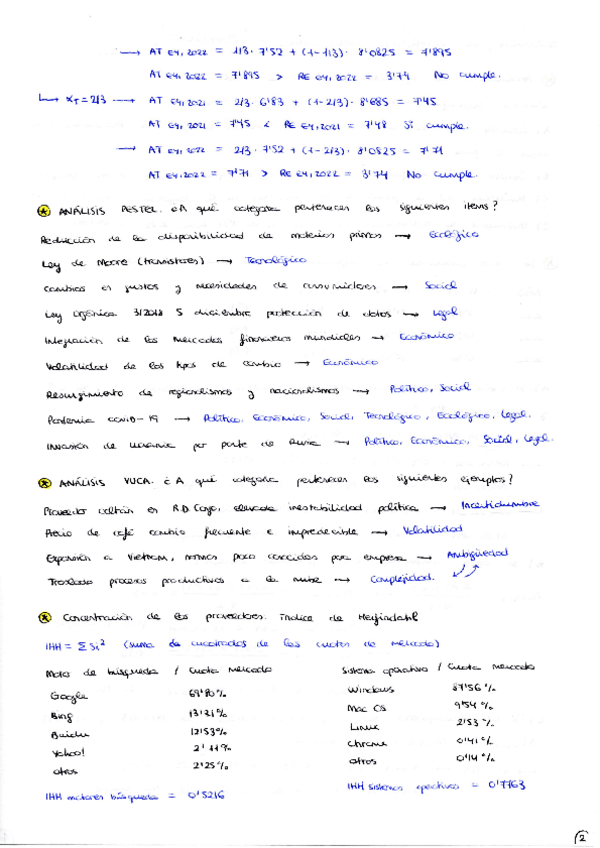 → AT E4, 2022 = 1/3 · 7'52 + (1-1/3) · 8'0825 = 7'895
AT E4, 2022 = 7'895 > RE E4, 2022 = 3'74 No cumple.
↳ α_T = 2/3 → AT E4, 2021 = 2/3 · 6'83 + (1-2/3) · 8'685 = 7'45
AT E4, 2021 = 7'45 < RE E4, 2021 = 7'48 Sí cumple.
→ AT E4, 2022 = 2/3 · 7'52 + (1-2/3) · 8'0825 = 7'71
AT E4, 2022 = 7'71 > RE E4, 2022 = 3'74 No cumple.
ANÁLISIS PESTEL. ¿A qué categoría pertenecen los siguientes items?
Reducción de la disponibilidad de materias primas → Ecológico
Ley de Moore (transistores) → Tecnológico
Cambios en gustos y necesidades de consumidores → Social
Ley Orgánica 3/2018 5 diciembre protección de datos → Legal
Integración de los mercados financieros mundiales → Económico
Volatilidad de los tipos de cambio → Económico
Resurgimiento de regionalismos y nacionalismos → Político, Social
Pandemia covid-19 → Político, Económico, Social, Tecnológico, Ecológico, Legal.
Invasión de Ucrania por parte de Rusia → Político, Económico, Social, Legal.
ANÁLISIS VUCA. ¿A qué categoría pertenecen los siguientes ejemplos?
Proveedor coltán en R.D. Congo, elevada inestabilidad política → Incertidumbre
Precio de café cambio frecuente e impredecible → Volatilidad
Expansión a Vietnam, normas poco conocidas para empresa → Ambigüedad
Traslado procesos productivos a la nube → Complejidad.
Concentración de los proveedores. Índice de Herfindahl
IHH = Σ Si² (suma de cuadrados de las cuotas de mercado)
Motor de búsqueda / Cuota mercado
Google 69'80%
Bing 13'21%
Baidu 12'53%
Yahoo! 2'11%
Otros 2'25%
IHH motores búsqueda = 0'5216
Sistema operativo / Cuota mercado
Windows 87'56%
Mac OS 9'54%
Linux 2'53%
Chrome 0'41%
Otros 0'14%
IHH sistemas operativos = 0'7763
2